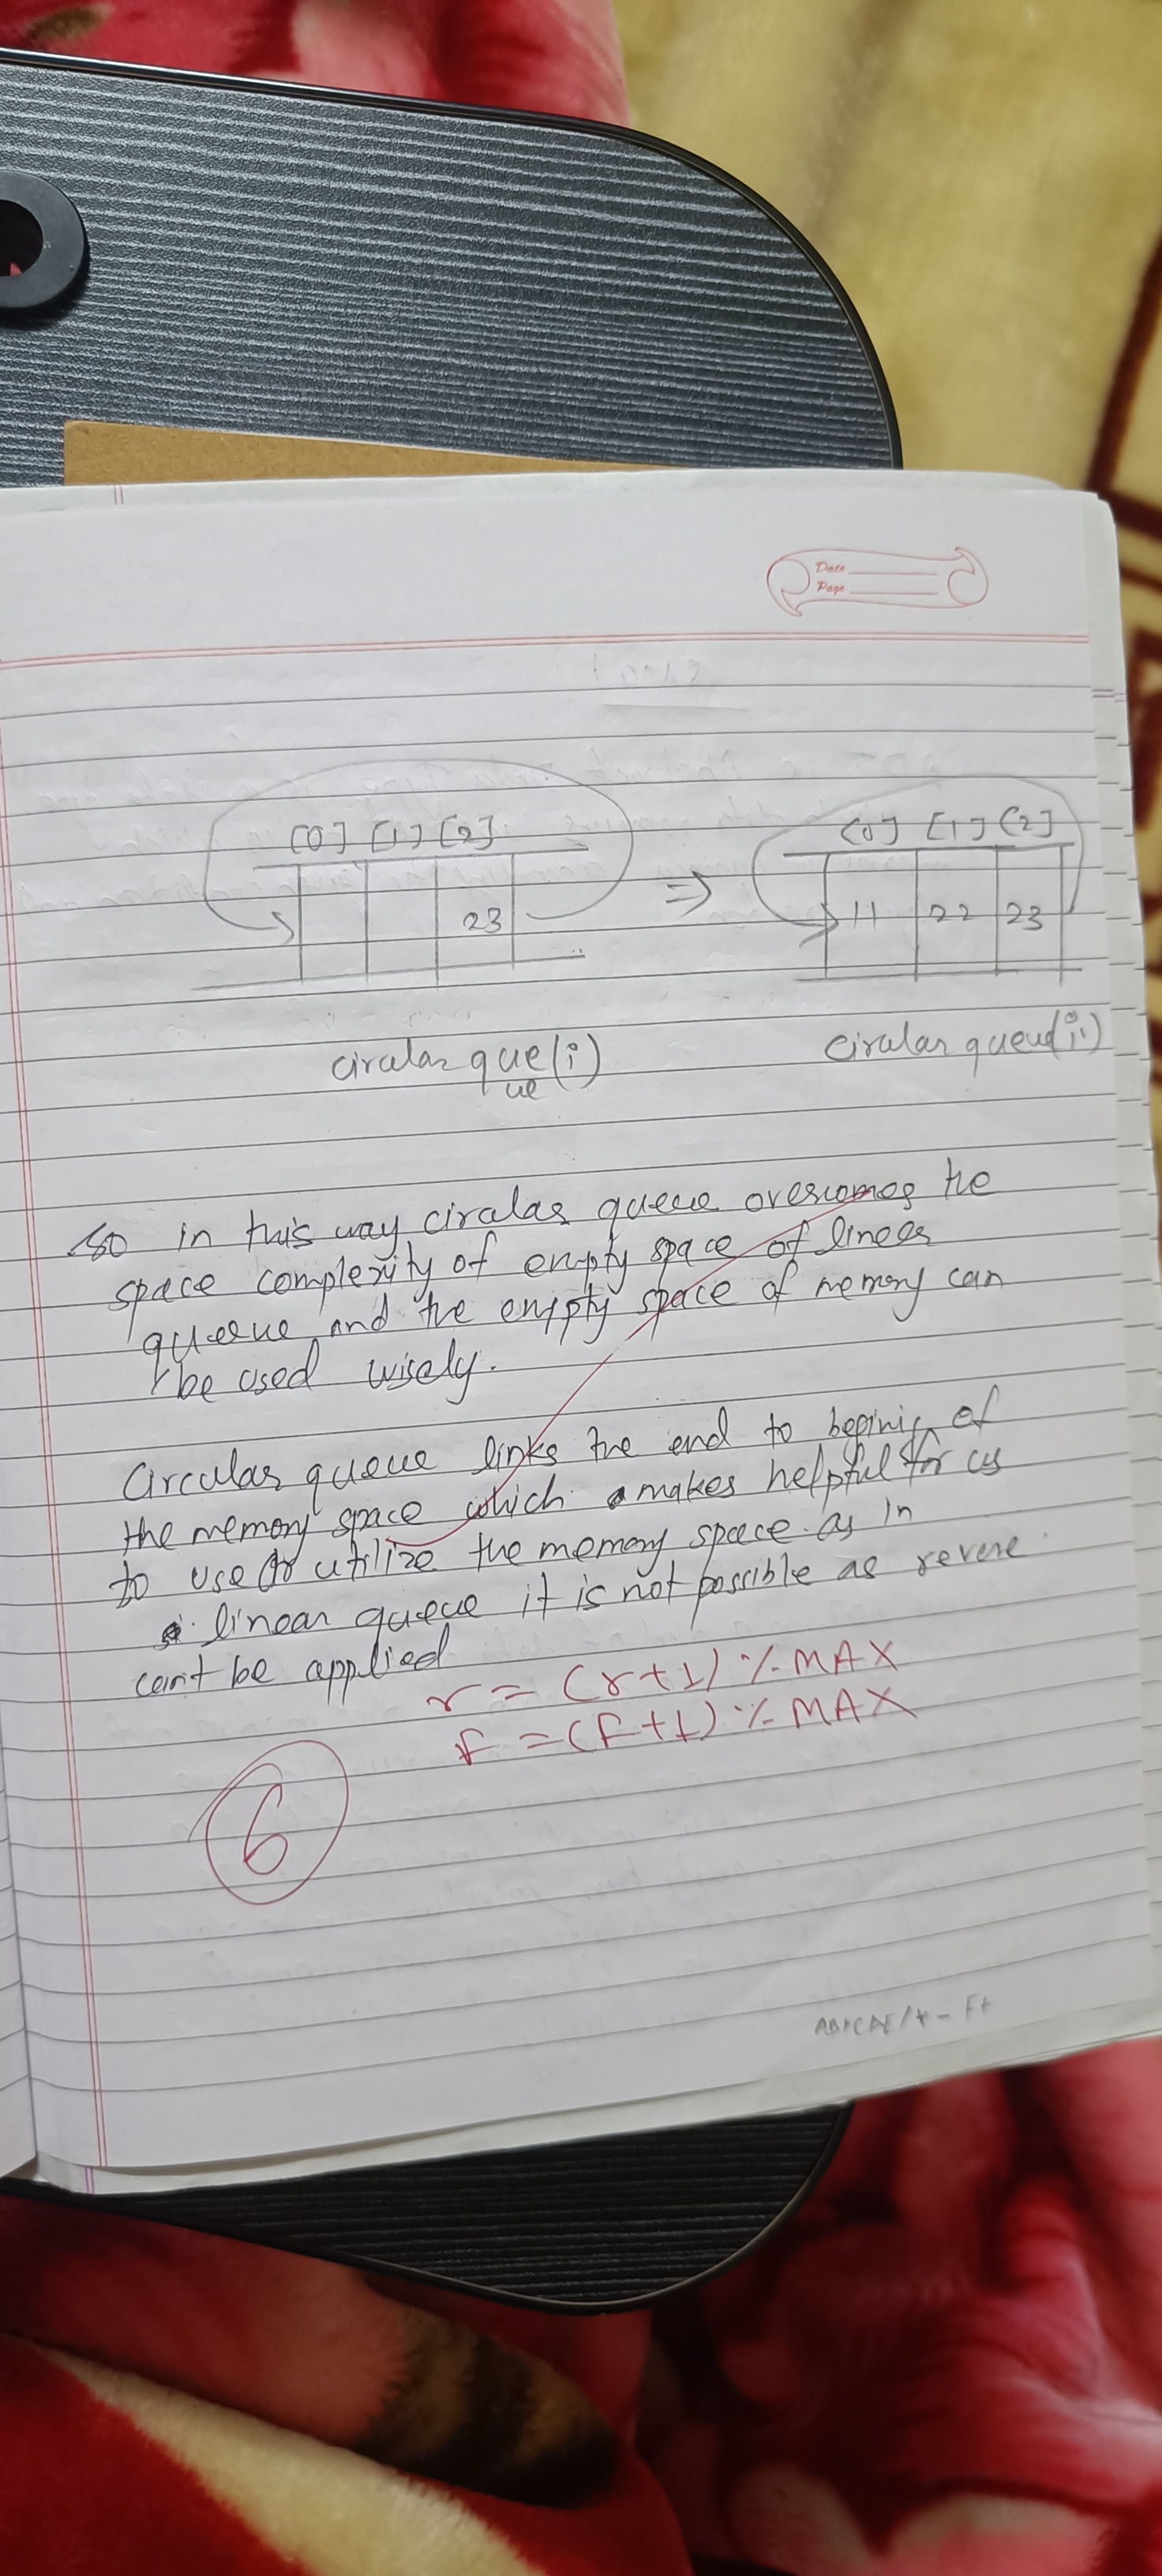 Date
Page
[0] [1] [2]
23
⇒
[0] [1] [2]
11 22 23
circular que(i)
ue
Circular queue(ii)
so in this way circular queue overcomes the
space complexity of empty space of linear
queue and the empty space of memory can
be used wisely.
Circular queue links the end to begining of
the memory space which makes helpful for us
to use or utilize the memory space as in
linear queue it is not possible as reverse
can't be applied
r = (r+1) % MAX
F = (F+1) % MAX
6